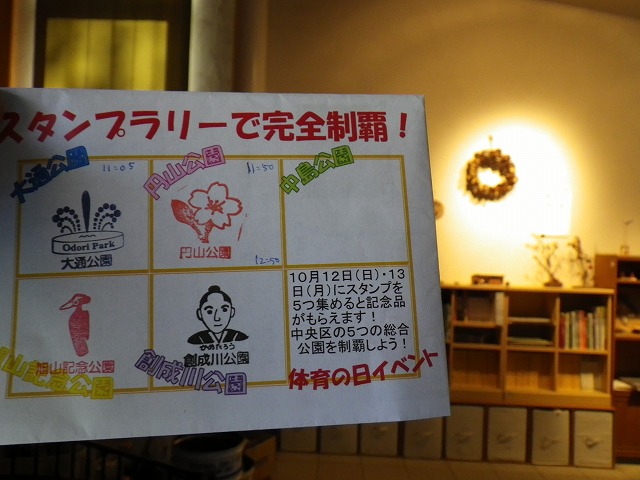 スタンプラリーで完全制覇！
大通公園
11:05
円山公園
11:50
中島公園
Odori Park
大通公園
円山公園
12:50
10月12日(日)・13
日(月)にスタンプを
5つ集めると記念品
がもらえます！
中央区の5つの総合
公園を制覇しよう！
旭山記念公園
かめたろう
創成川公園
山記念公園
創成川公園
体育の日イベント